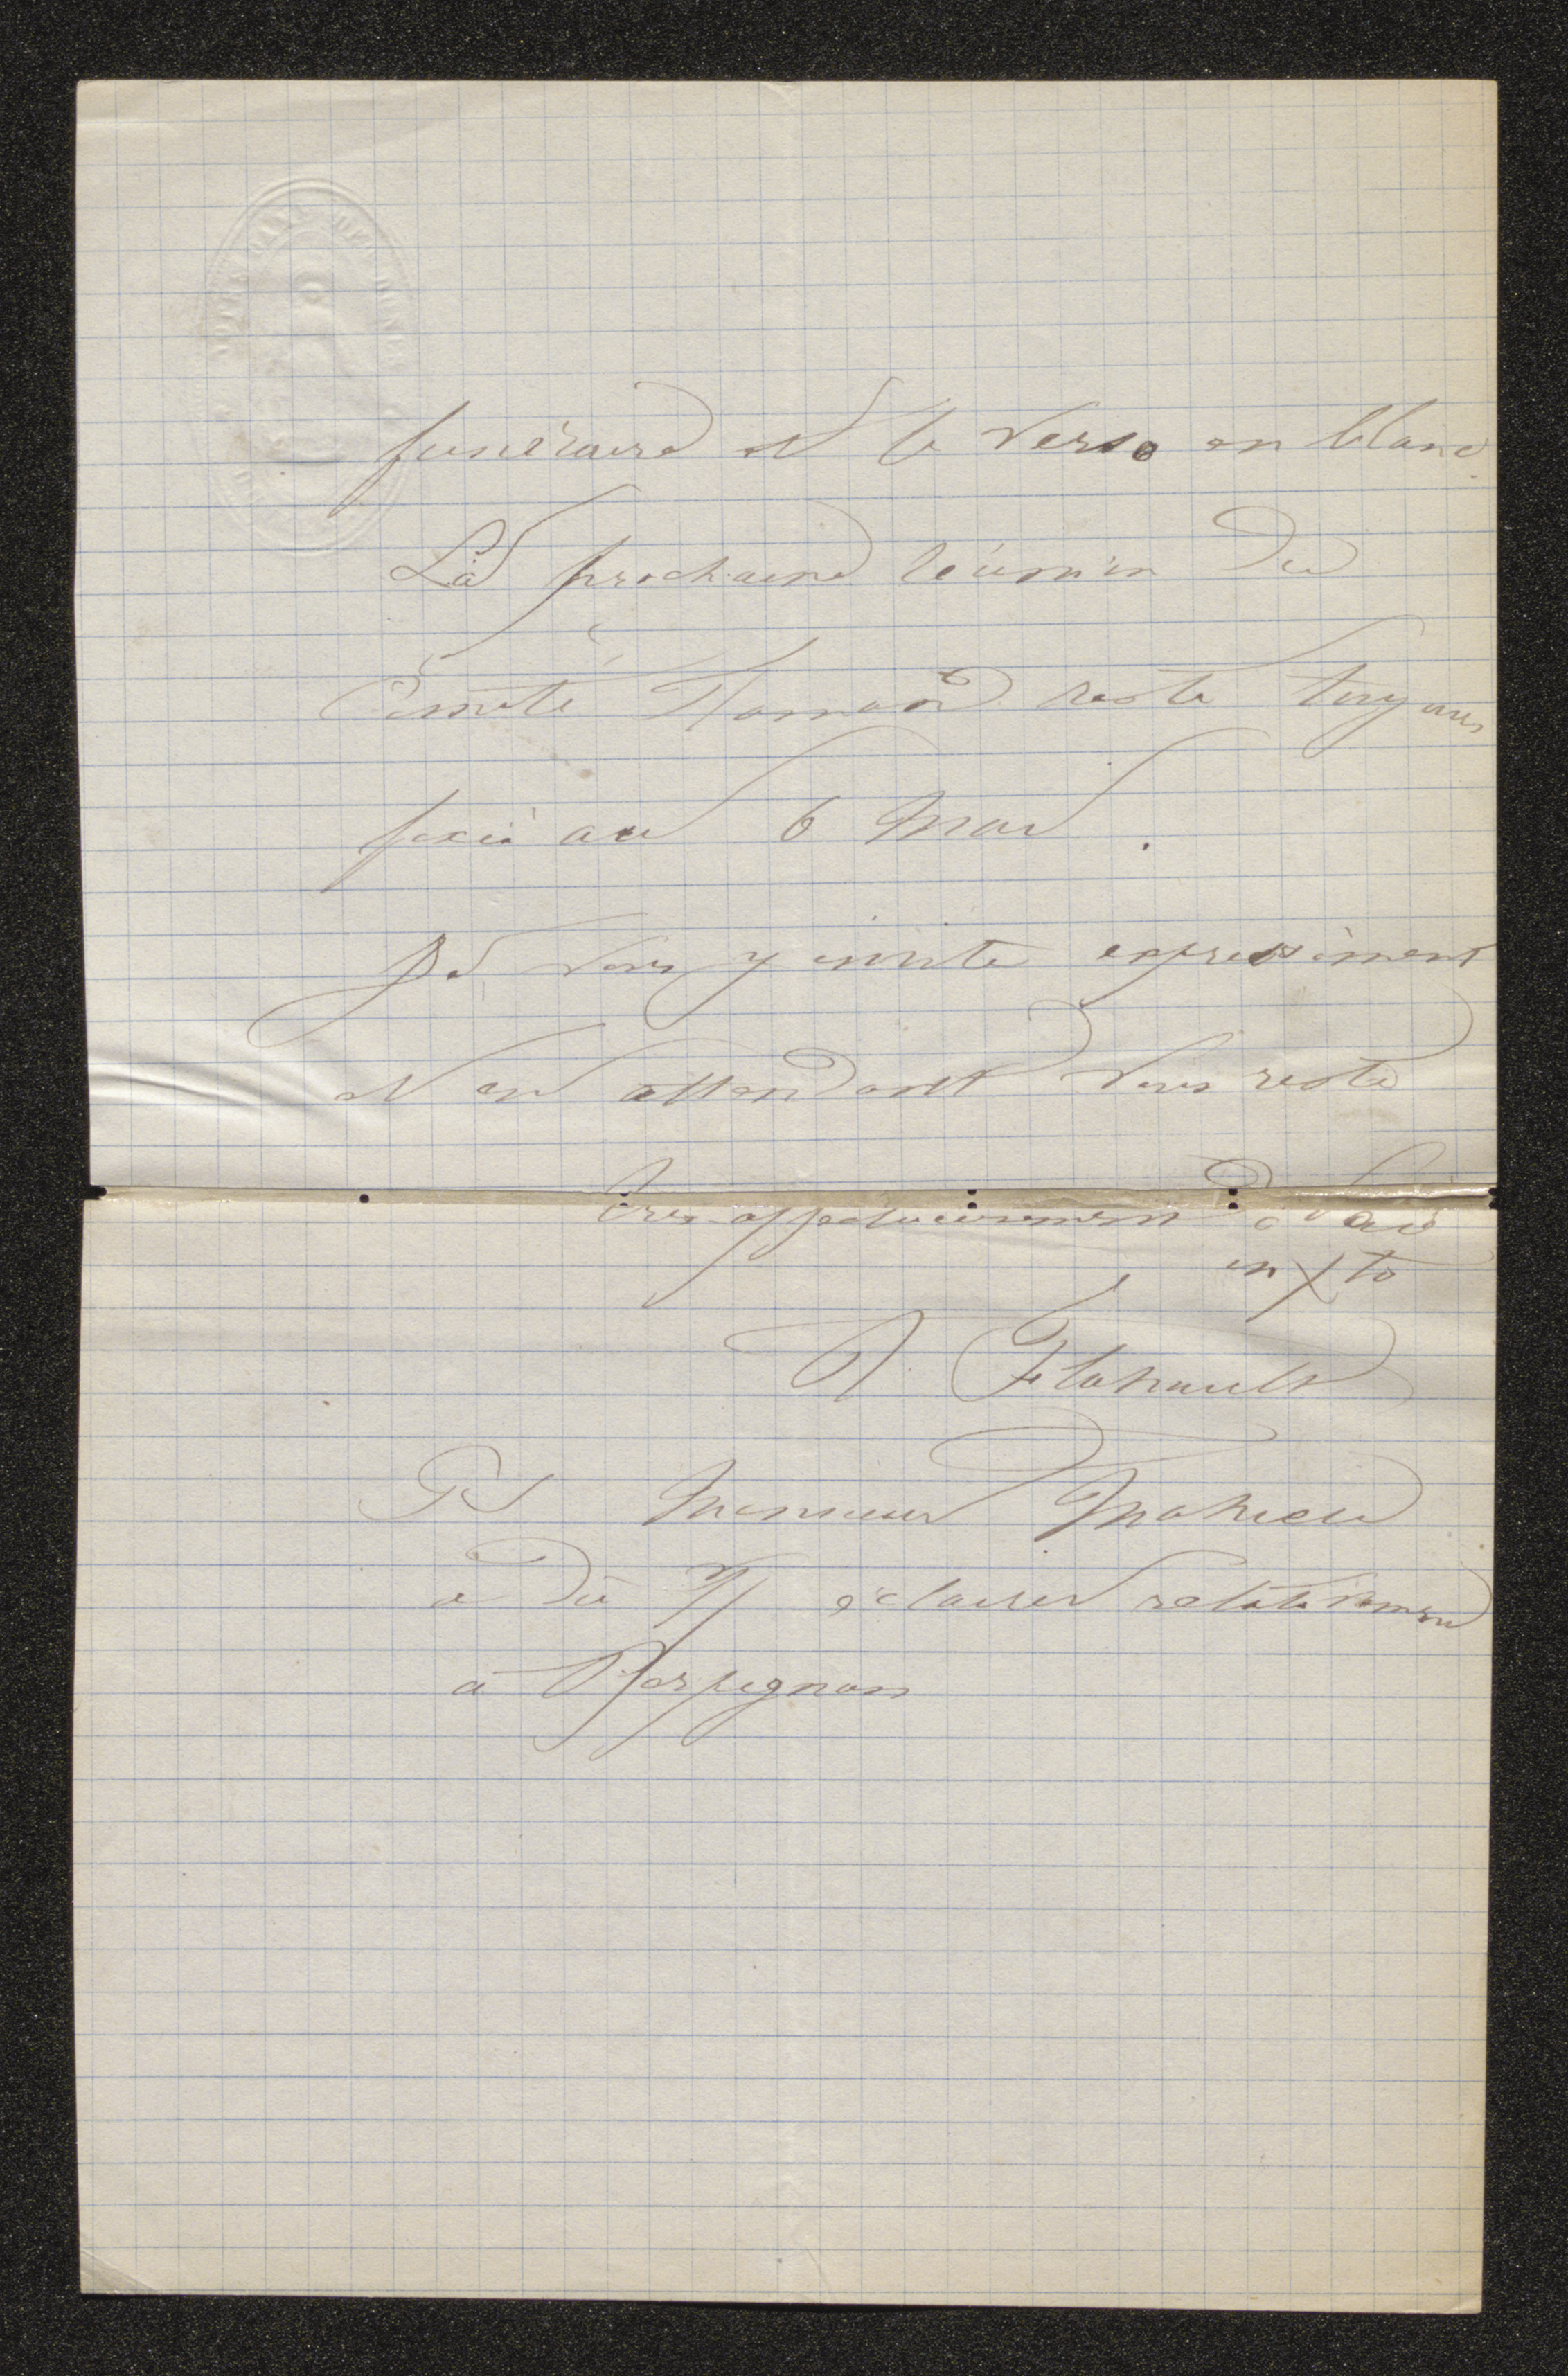 funéraire et le verso en blanc.
La prochaine réunion du
Comité flamand reste toujours
fixée au 6 Mai.
Je vous y invite expressément
et en attendant vous reste
très affectueusement
en Xto
A. Flahault
PS Monsieur Mahieu
a dû éclairer relativement
à Perpignan